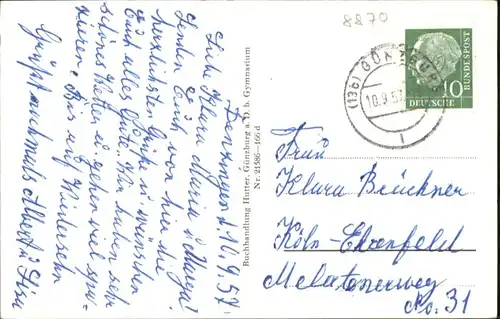 8870
Denzingen d. 10.9.57
Liebe Klara Maria u. Margot!
Senden Euch von hier die
herzlichsten Grüße u. wünschen
Euch alles Gute. Wir haben sehr
schönes Wetter u. gehen viel spa-
zieren. Bis auf Wiedersehn
Grüßt nochmals Albert u. Lisa
Buchhandlung Hutter, Günzburg a. D. b. Gymnasium
Nr. 21585-166 d
(13b) GÜNZBURG
10.9.57
1
10
BUNDESPOST
DEUTSCHE
Frau
Klara Brückner
Köln-Ehrenfeld
Melatenerweg
No. 31